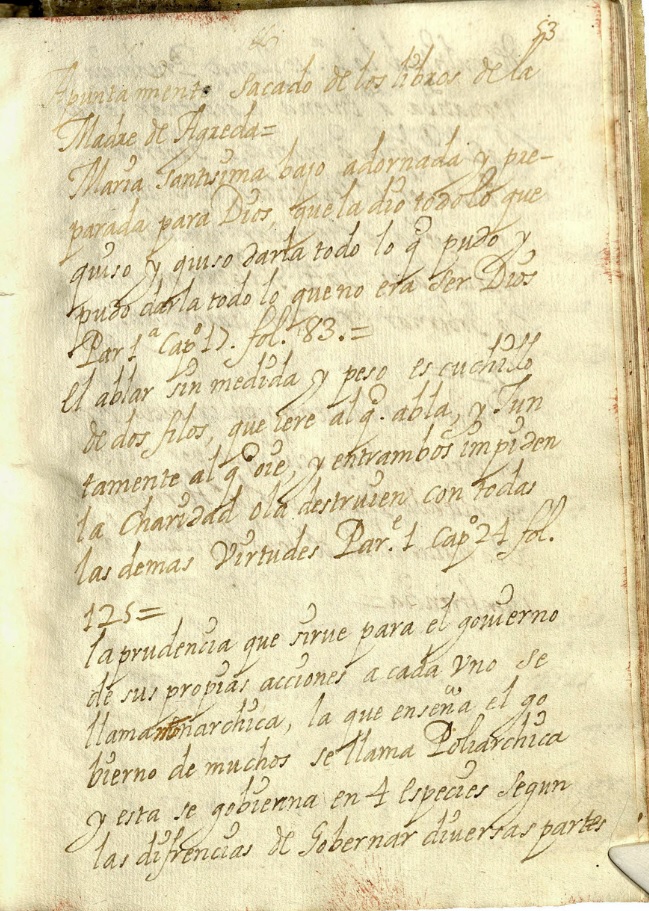 53
Apuntamiento Sacado de los libros de la
Madre de Agreda=
Maria Santisima bajo adornada y pre-
parada para Dios que la dio todo lo que
quiso y quiso darla todo lo q̃ pudo y
pudo darla todo lo que no era Ser Dios
Par 1ª Capº 17. fol. 83.=
El ablar sin medida y peso es cuchillo
de dos filos, que iere al q̃. abla, y Jun
tamente al q̃ oie, y entrambos impiden
la Charidad o la destruien con todas
las demas Virtudes Par.ᵉ 1 Capº 24 fol.
125=
la prudencia que sirve para el govierno
de sus propias acciones a cada vno se
llama monarchica, la que enseña el go
bierno de muchos se llama Poliarchica
y esta se gobierna en 4 especies Segun
las difrencias de Gobernar diversas partes